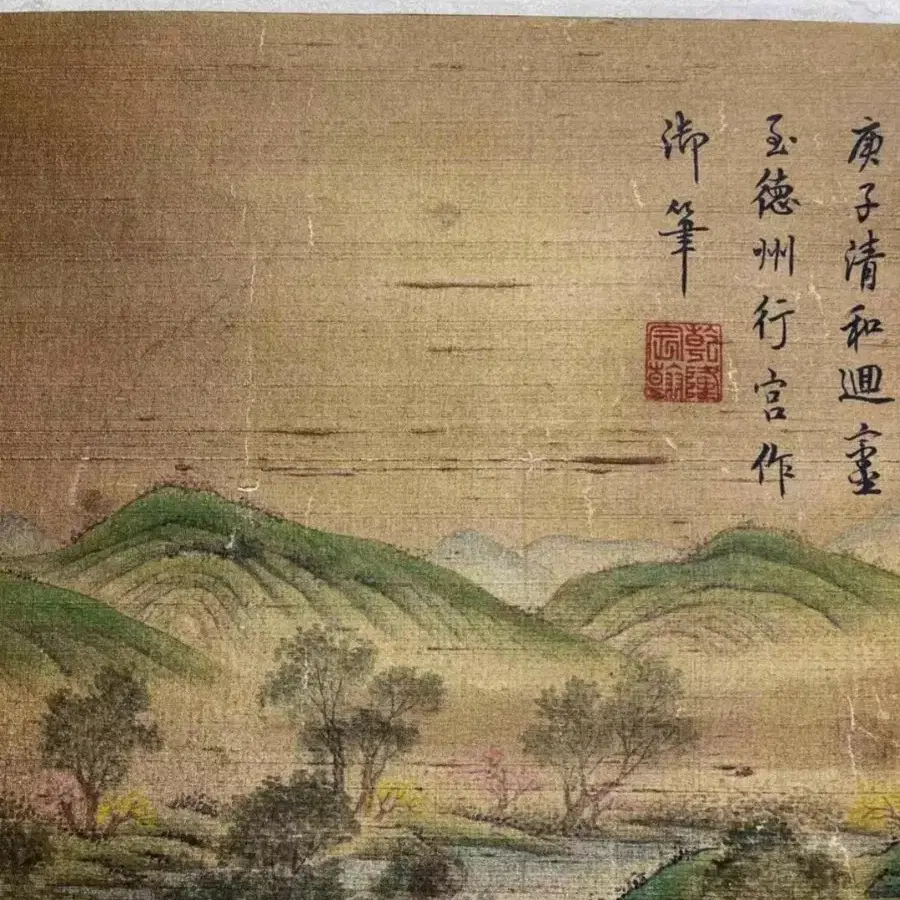 庚子清和迴鑾
至德州行宫作
御筆
乾隆宸翰